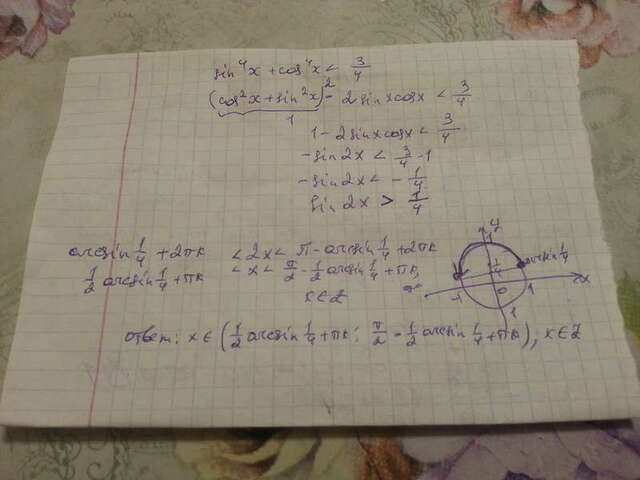 sin⁴x + cos⁴x < 3/4
(cos²x + sin²x)² - 2sinxcosx < 3/4
1
1 - 2sinxcosx < 3/4
-sin2x < 3/4 - 1
-sin2x < -1/4
sin2x > 1/4
arcsin 1/4 + 2πk < 2x < π - arcsin 1/4 + 2πk
1/2 arcsin 1/4 + πk < x < π/2 - 1/2 arcsin 1/4 + πk,
k∈Z
y
1
1/4
arcsin 1/4
x
-1
0
1
ответ: x∈(1/2 arcsin 1/4 + πk; π/2 - 1/2 arcsin 1/4 + πk), k∈Z